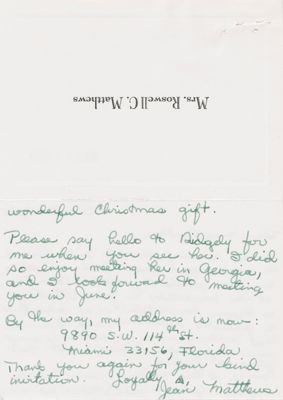 Mrs. Roswell C. Matthews
wonderful Christmas gift.
Please say hello to Ridgely for
me when you see her. I did
so enjoy meeting her in Georgia,
and I look forward to meeting
you in June.
By the way, my address is now:
9890 S.W. 114th St.
Miami 33156, Florida
Thank you again for your kind
invitation. Loyally,
Jean Matthews